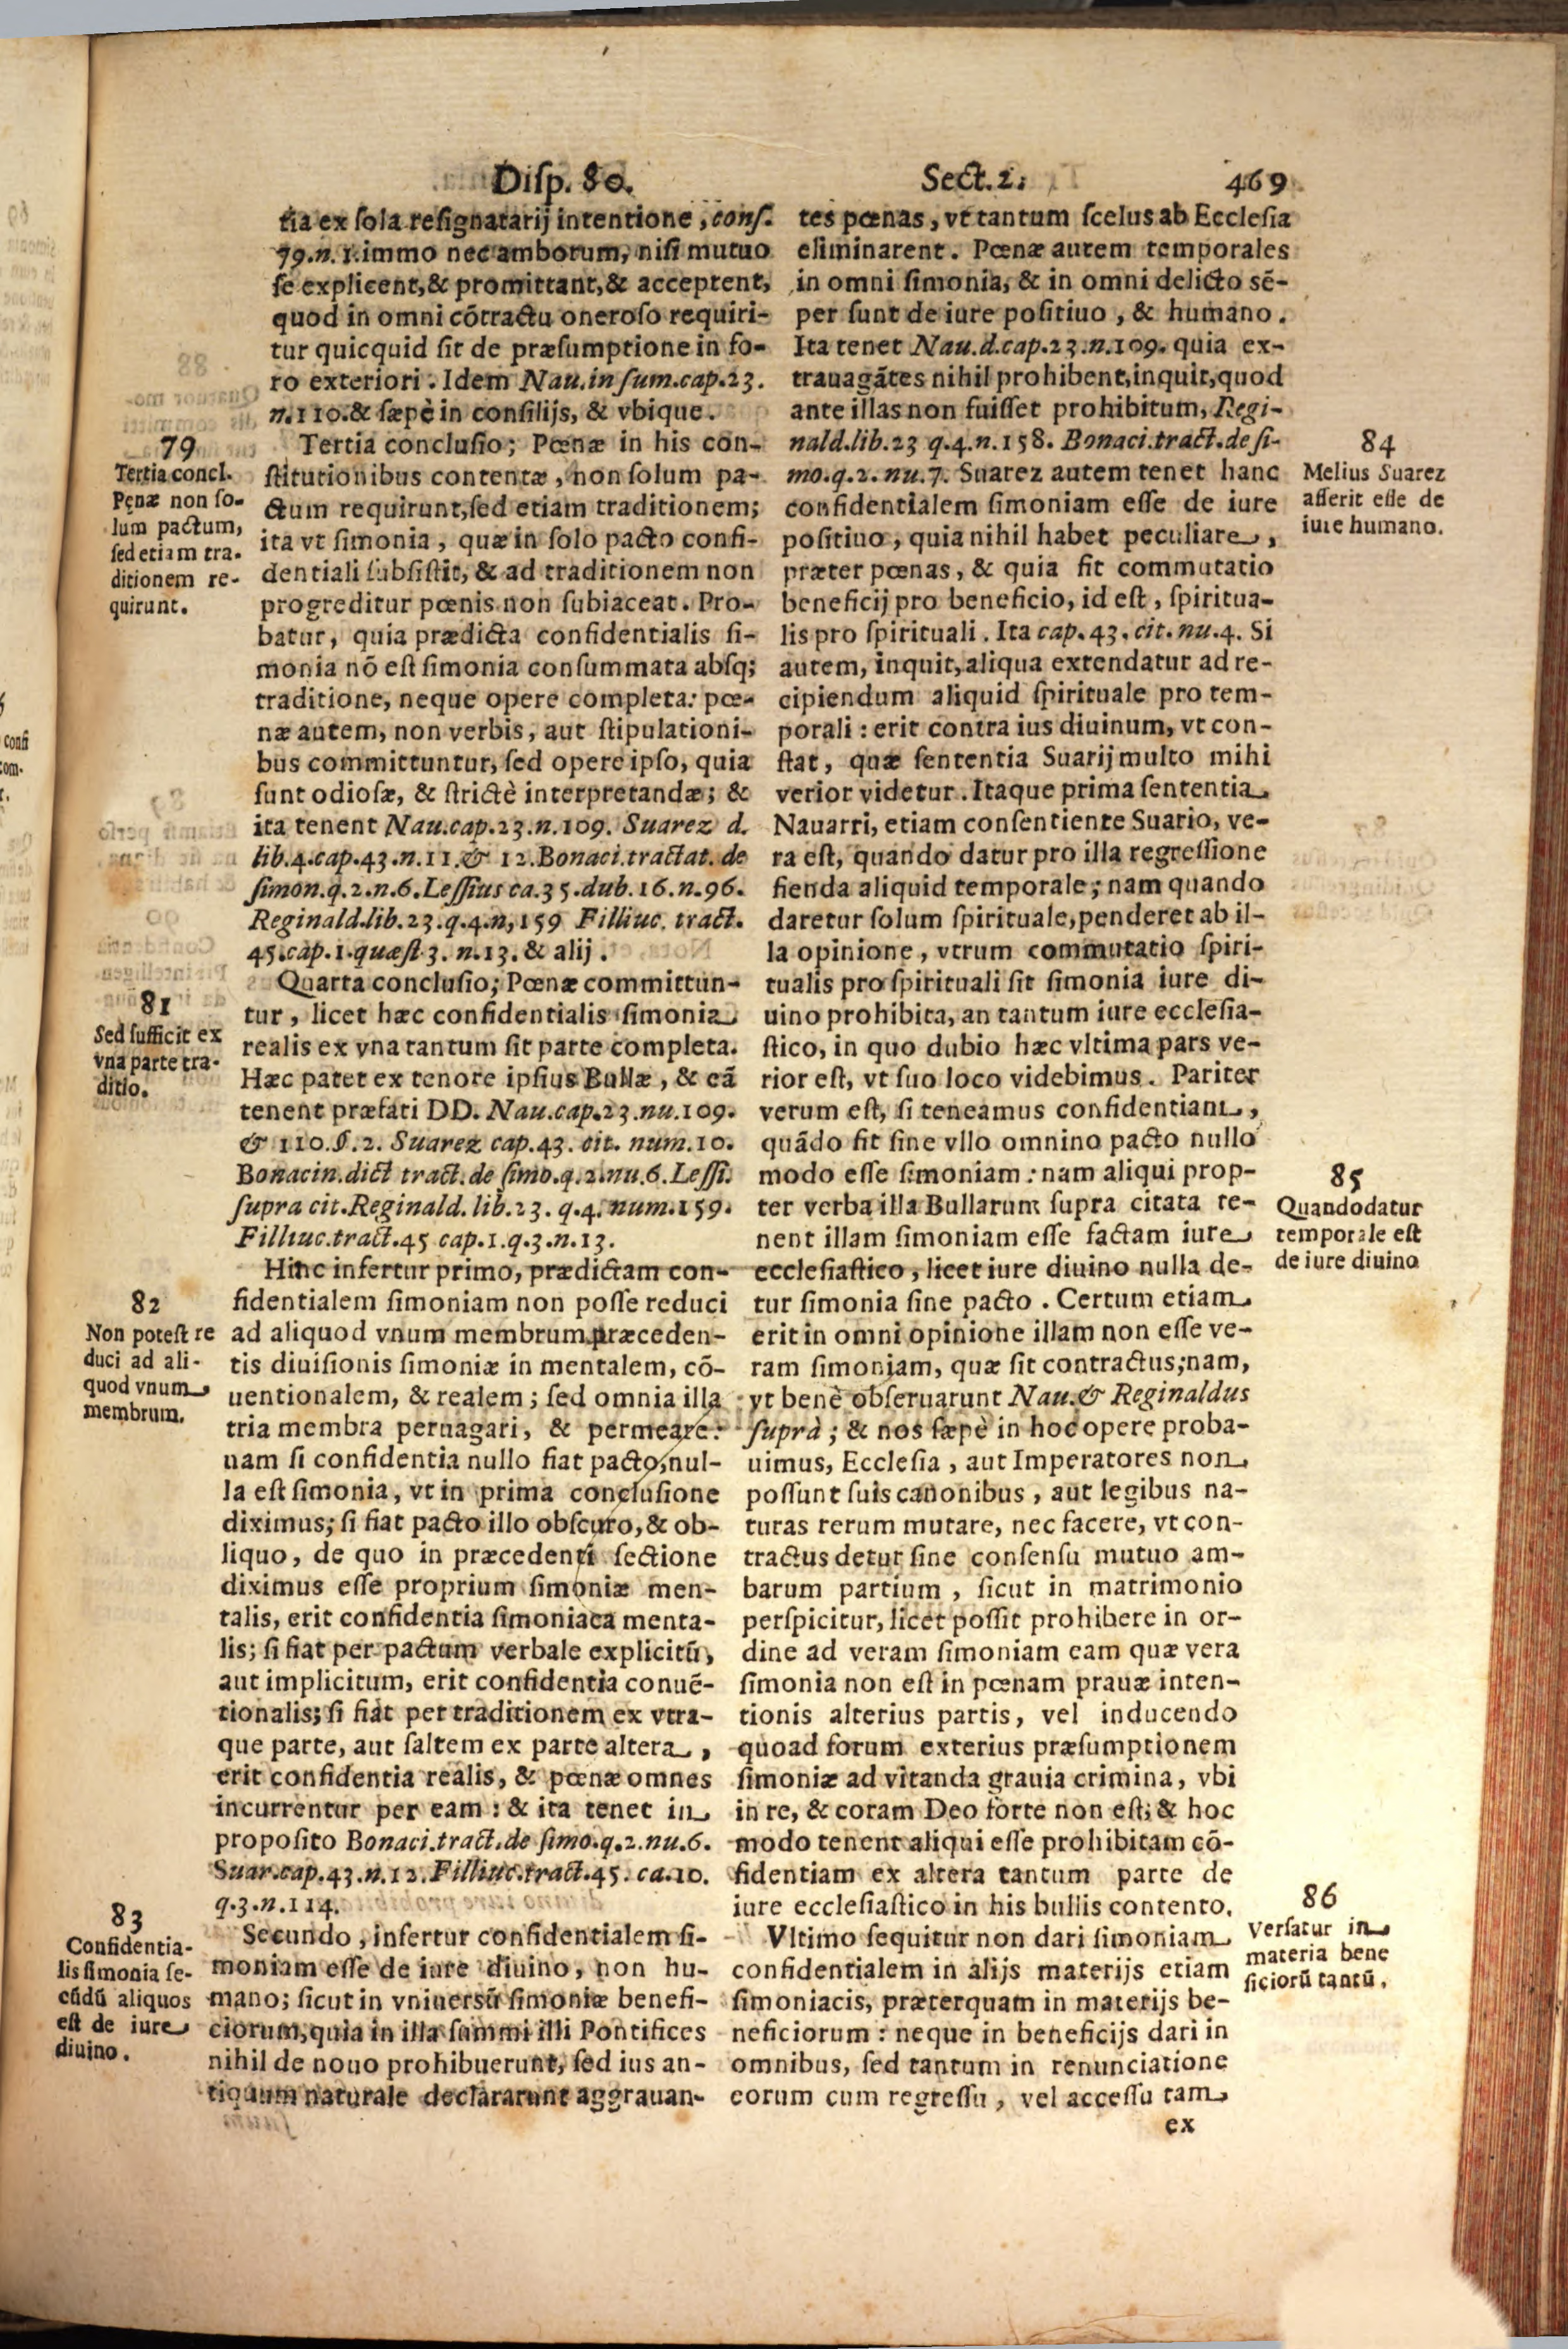 Disp. 80. Sect. 2. 469
tia ex sola resignatarij intentione, cons.
79.n. 1. immo nec amborum, nisi mutuo
se explicent, & promittant, & acceptent,
quod in omni cōtractu oneroso requiri-
tur quicquid sit de præsumptione in fo-
ro exteriori. Idem Nau.in sum.cap.23.
n.110.& sæpè in consilijs, & vbique.
79
Tertia concl.
Penæ non so-
lum pactum,
sed etiam tra-
ditionem re-
quirunt.
Tertia conclusio; Pœnæ in his con-
stitutionibus contentæ, non solum pa-
ctum requirunt, sed etiam traditionem;
ita vt simonia, quæ in solo pacto confi-
dentiali subsistit, & ad traditionem non
progreditur pœnis non subiaceat. Pro-
batur, quia prædicta confidentialis si-
monia nō est simonia consummata absq;
traditione, neque opere completa: pœ-
næ autem, non verbis, aut stipulationi-
bus committuntur, sed opere ipso, quia
sunt odiosæ, & strictè interpretandæ; &
ita tenent Nau.cap.23.n.109. Suarez d.
lib.4.cap.43.n.11.& 12.Bonaci.tractat. de
simon.q.2.n.6.Lessius ca.35.dub. 16.n.96.
Reginald.lib.23.q.4.n,159 Filliuc. tract.
45.cap.1.quæst 3. n.13.& alij.
81
Sed sufficit ex
vna parte tra-
ditio.
Quarta conclusio; Pœnæ committun-
tur, licet hæc confidentialis simonia
realis ex vna tantum sit parte completa.
Hæc patet ex tenore ipsius Bullæ, & eā
tenent præfati DD. Nau.cap.23.nu.109.
& 110.§.2. Suarez cap.43. cit. num.10.
Bonacin.dict tract.de simo.q.2.nu.6.Lessi.
supra cit.Reginald. lib.23. q.4. num.159.
Filliuc.tract.45 cap.1.q.3.n.13.
82
Non potest re
duci ad ali-
quod vnum
membrum.
Hinc infertur primo, prædictam con-
fidentialem simoniam non posse reduci
ad aliquod vnum membrum præceden-
tis diuisionis simoniæ in mentalem, cō-
uentionalem, & realem; sed omnia illa
tria membra peruagari, & permeare:
nam si confidentia nullo fiat pacto, nul-
la est simonia, vt in prima conclusione
diximus; si fiat pacto illo obscuro, & ob-
liquo, de quo in præcedenti sectione
diximus esse proprium simoniæ men-
talis, erit confidentia simoniaca menta-
lis; si fiat per pactum verbale explicitū,
aut implicitum, erit confidentia conuē-
tionalis; si fiat per traditionem ex vtra-
que parte, aut saltem ex parte altera,
erit confidentia realis, & pœnæ omnes
incurrentur per eam: & ita tenet in
proposito Bonaci.tract.de simo.q.2.nu.6.
Suar.cap.43.n.12.Filliuc.tract.45. ca.10.
q.3.n.114.
83
Confidentia-
lis simonia se-
cūdū aliquos
est de iure
diuino.
Secundo, infertur confidentialem si-
moniam esse de iure diuino, non hu-
mano; sicut in vniuersū simoniæ benefi-
ciorum, quia in illa summi illi Pontifices
nihil de nouo prohibuerunt, sed ius an-
tiquum naturale declararunt aggrauan-
tes pœnas, vt tantum scelus ab Ecclesia
eliminarent. Pœnæ autem temporales
in omni simonia, & in omni delicto sē-
per sunt de iure positiuo, & humano.
Ita tenet Nau.d.cap.23.n.109. quia ex-
trauagātes nihil prohibent, inquit, quod
ante illas non fuisset prohibitum, Regi-
nald.lib.23 q.4.n.158. Bonaci.tract.de si-
mo.q.2.nu.7. Suarez autem tenet hanc
confidentialem simoniam esse de iure
positiuo, quia nihil habet peculiare,
præter pœnas, & quia fit commutatio
beneficij pro beneficio, id est, spiritua-
lis pro spirituali. Ita cap.43.cit.nu.4. Si
autem, inquit, aliqua extendatur ad re-
cipiendum aliquid spirituale pro tem-
porali: erit contra ius diuinum, vt con-
stat, quæ sententia Suarij multo mihi
verior videtur. Itaque prima sententia
Nauarri, etiam consentiente Suario, ve-
ra est, quando datur pro illa regressione
fienda aliquid temporale; nam quando
daretur solum spirituale, penderet ab il-
la opinione, vtrum commutatio spiri-
tualis pro spirituali sit simonia iure di-
uino prohibita, an tantum iure ecclesia-
stico, in quo dubio hæc vltima pars ve-
rior est, vt suo loco videbimus. Pariter
verum est, si teneamus confidentiam,
quādo fit sine vllo omnino pacto nullo
modo esse simoniam: nam aliqui prop-
ter verba illa Bullarum supra citata te-
nent illam simoniam esse factam iure
ecclesiastico, licet iure diuino nulla de-
tur simonia sine pacto. Certum etiam
erit in omni opinione illam non esse ve-
ram simoniam, quæ sit contractus; nam,
vt benè obseruarunt Nau.& Reginaldus
suprà; & nos sæpè in hoc opere proba-
uimus, Ecclesia, aut Imperatores non
possunt suis canonibus, aut legibus na-
turas rerum mutare, nec facere, vt con-
tractus detur sine consensu mutuo am-
barum partium, sicut in matrimonio
perspicitur, licet possit prohibere in or-
dine ad veram simoniam eam quæ vera
simonia non est in pœnam prauæ inten-
tionis alterius partis, vel inducendo
quoad forum exterius præsumptionem
simoniæ ad vitanda grauia crimina, vbi
in re, & coram Deo forte non est; & hoc
modo tenent aliqui esse prohibitam cō-
fidentiam ex altera tantum parte de
iure ecclesiastico in his bullis contento.
Vltimo sequitur non dari simoniam
confidentialem in alijs materijs etiam
simoniacis, præterquam in materijs be-
neficiorum: neque in beneficijs dari in
omnibus, sed tantum in renunciatione
eorum cum regressu, vel accessu tam
ex
84
Melius Suarez
asserit esse de
iure humano.
85
Quando datur
temporale est
de iure diuino
86
Versatur in
materia bene
ficiorū tantū.